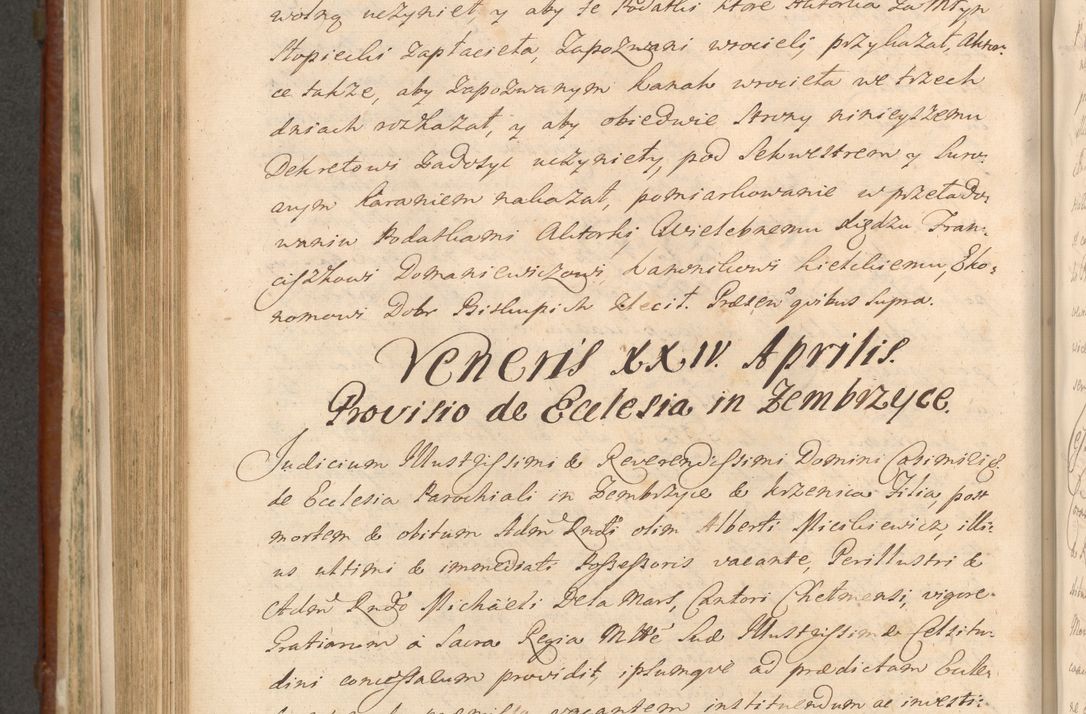 wolną uczynieł, y aby te Podatki ktore Aktorka za Młyn
Stopiecki zapłacieła, Zapozwani wrocieli, przykazał, Aktor-
ce także, aby Zapozwanym kanak wrocieła we trzech
dniach rozkazał, y aby obiedwie Strony ninieyszemu
Dekretowi Zadosyć uczynieły, pod Sekwestrem y Suro-
wym karaniem nakazał, pomiarkowanie w przeładow-
waniu Podatkami Aktorki Wielebnemu Xiędzu Fran-
ciszkowi Domaniewiczowi, kanonikowi kieleckiemu, Eko-
nomowi Dobr Biskupich zlecił. Præsen. quibus supra.
Veneris XXIV. Aprilis.
Provisio de Ecclesia in Zembrzyce.
Judicium Illustrissimi & Reverendissimi Domini Casimiri &.
de Ecclesia Parochiali in Zembrzyce & krzenica Filia, post
mortem & obitum Admd Rndi olim Alberti Micikiewicz, illi-
us ultimi & immediati Possessoris vacante, Perillustri &
Admd Rndo Michaeli De la Mars, Cantori Chelmensi, vigore
Gratiarum à Sacra Regia Mtte Suæ Illustrissimæ Celsitu-
dini concessarum providit, ipsumque ad prædictam Eccle-
vacantem instituendum ac investi-